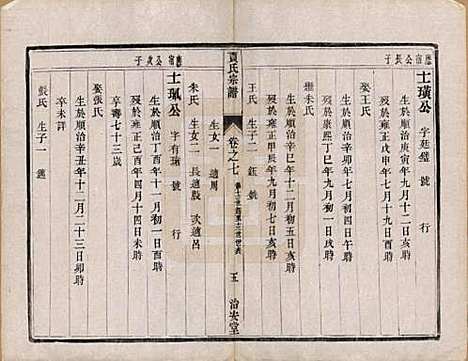 應宿公長子
士璜公 字廷璧 號 行
生於順治庚寅年九月初四日午時
歿於雍正戊申年九月十九日酉時
娶王氏
歿於康熙丁丑年九月初一日戌時
繼朱氏
生於順治辛巳年十二月初一日亥時
歿於雍正甲辰年九月初七日亥時
王氏 生子二 鈺
袁氏宗譜
卷之七
五 治安堂
生女一 適周
朱氏 生女二 長適殷 次適呂
應宿公次子
士珮公 字有瑜 號 行
生於順治丁酉年十二月初一日酉時
歿於雍正己酉年四月十四日未時
享壽七十三歲
娶張氏
生於順治辛丑年十二月二十三日卯時
卒未詳
張氏 生子一 鑑